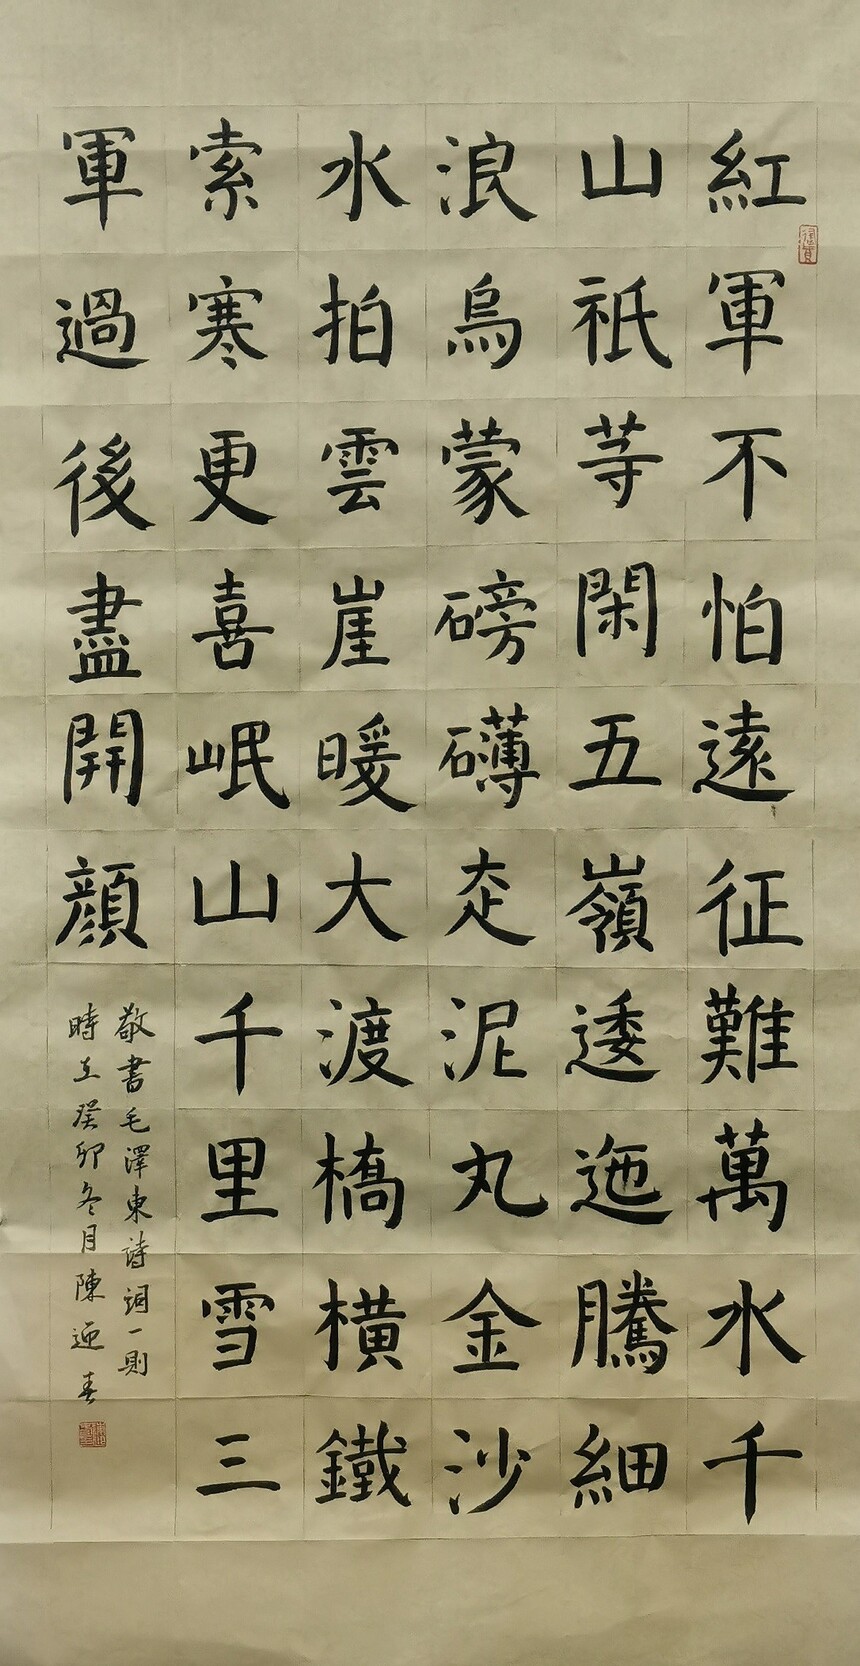 紅軍不怕遠征難萬水千
山祇䓁閑五嶺逶迤騰細
浪烏蒙磅礴走泥丸金沙
水拍雲崖暖大渡橋橫鐵
索寒更喜岷山千里雪三
軍過後盡開顔
敬書毛澤東詩詞一則
時在癸卯冬月陳迎春